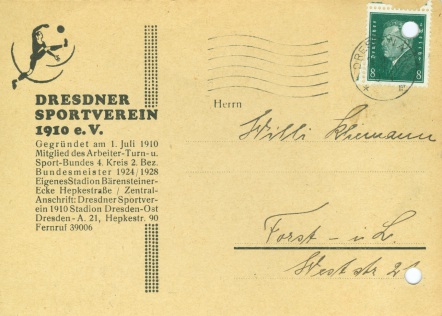 DRESDNER
SPORTVEREIN
1910 e. V.
Gegründet am 1. Juli 1910
Mitglied des Arbeiter-Turn- u.
Sport-Bundes 4. Kreis 2. Bez.
Bundesmeister 1924/1928
Eigenes Stadion Bärensteiner-
Ecke Hepkestraße / Zentral-
Anschrift: Dresdner Sportver-
ein 1910 Stadion Dresden-Ost
Dresden-A. 21, Hepkestr. 90
Fernruf 39006
Deutsches Reich
8 8
DRES
Herrn
Willi Klemann
Forst - i. L.
Weststr 2